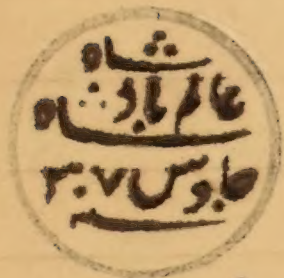 شاه
عالم باد
شاه
جلوس ۳۰۷
سنه